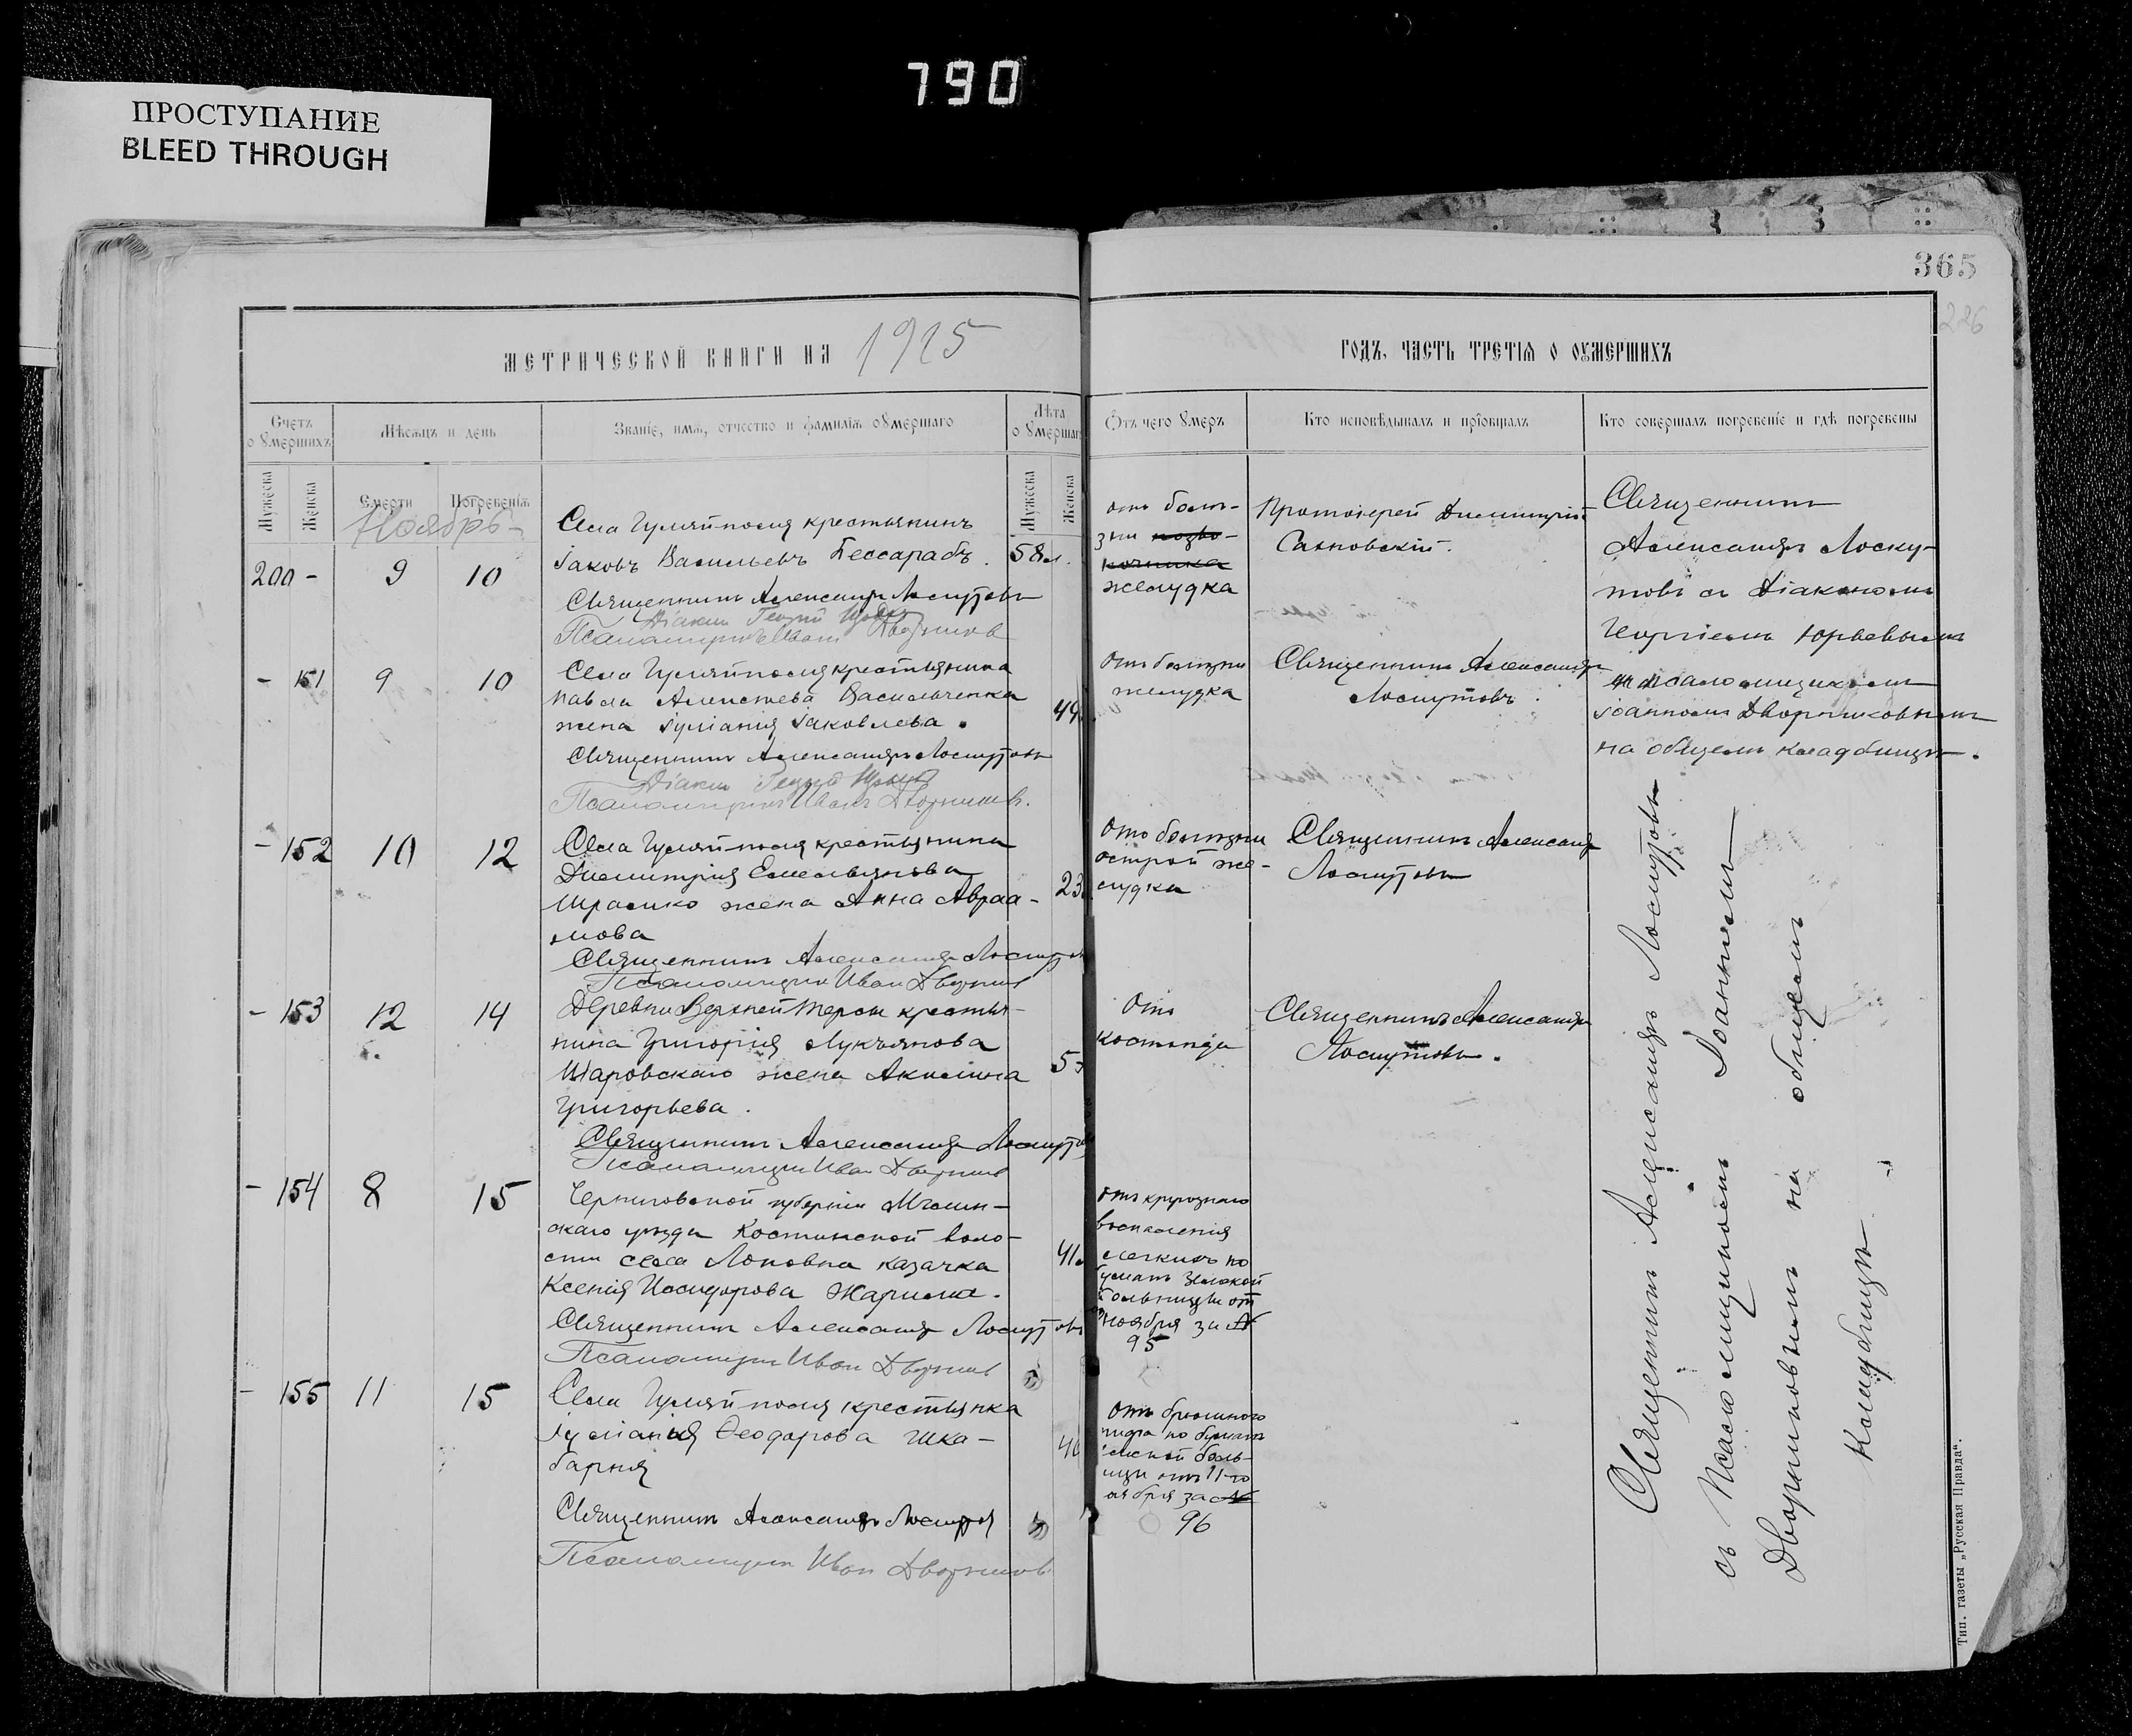 790
ПРОСТУПАНИЕ
BLEED THROUGH
365
226
МЕТРИЧЕСКОЙ КНИГИ НА 1915
ГОДЪ, ЧАСТЬ ТРЕТІЯ О ОУМЕРШИХЪ
Счетъ о Умершихъ
Мѣсяцъ и день
Званіе, имя, отчество и фамилія оумершаго
Лѣта оумершаго
Отъ чего Умеръ
Кто исповѣдывалъ и пріобщалъ
Кто совершалъ погребеніе и гдѣ погребены
Мужеска
Женска
Смерти
Погребенія
Мужеска
Женска
Ноябрь
200 - 9 10
Села Гуляйполя крестьянинъ
Іаковъ Васильевъ Бессарабъ. 58л.
Священникъ Александръ Лоскутовъ
Діаконъ Георгій
Псаломщикъ Иванъ Дворниковъ
отъ болѣ-
зни
желудка
Протоіерей Димитрій
Сахновскій.
Священникъ
Александръ Лоску-
товъ съ Діакономъ
Георгіемъ Юрьевымъ
и псаломщикомъ
Іоанномъ Дворниковымъ
на общемъ кладбищѣ.
- 151 9 10
Села Гуляйполя крестьянина
Павла Алексѣева Васильченка
жена Іуліанія Іаковлева. 49
Священникъ Александръ Лоскутовъ
Діаконъ Георгій
Псаломщикъ Иванъ Дворниковъ.
Отъ болѣзни
желудка
Священникъ Александръ
Лоскутовъ.
- 152 10 12
Села Гуляйполя крестьянина
Димитрія Емельянова
жена Анна Авраа-
мова 23
Священникъ Александръ Лоскутовъ
Псаломщикъ Иванъ Дворниковъ
Отъ болѣзни
острой же-
лудка
Священникъ Александръ
Лоскутовъ
- 153 12 14
Деревни Верхней Терсы крестья-
нина Григорія Лукьянова
Шаровскаго жена Акилина
Григорьева.
Священникъ Александръ Лоскутовъ
Псаломщикъ Иванъ Дворниковъ
Отъ
Священникъ Александръ
Лоскутовъ.
- 154 8 15
Черниговской губерніи Мглин-
скаго уѣзда Костинской воло-
сти села казачка
Ксенія Исидорова 41
Священникъ Александръ Лоскутовъ
Псаломщикъ Иванъ Дворниковъ
отъ крупознаго
воспаленія
легкихъ по
больницы от
ноября за №
95
- 155 11 15
Села Гуляйполя крестьянка
Іуліанія Ѳеодорова Шка-
барня
Священникъ Александръ Лоскутовъ
Псаломщикъ Иванъ Дворниковъ
Отъ брюшного
тифа по бумагѣ
боль-
ницы отъ 11-го
ноября за №
96
Священникъ Александръ Лоскутовъ
съ Псаломщикомъ Іоанномъ
Дворниковымъ на общемъ
кладбищѣ
Тип. газеты „Русская Правда“.